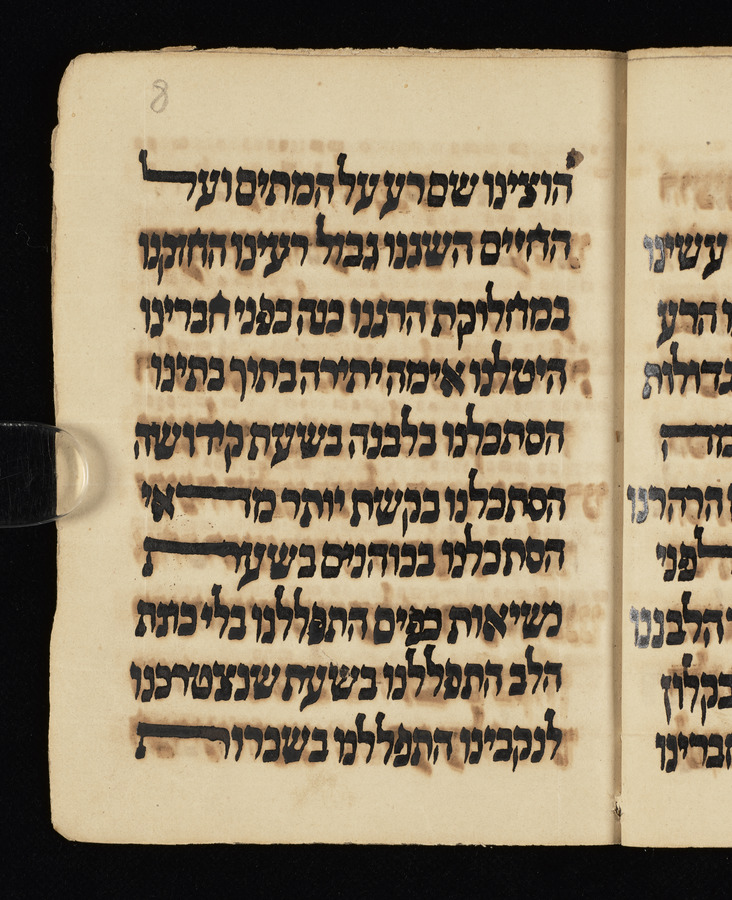 8
הוצינו שם רע על המתים ועל
החיים השגנו גבול רעינו החזקנו
במחלוקת הרגנו כמה בפני חברינו
היטלנו אימה יתירה בתוך בתינו
הסתכלנו בלבנה בשעת קידושה
הסתכלנו בקשת יותר מדאי
הסתכלנו בכוהנים בשעת
נשיאות כפים התפללנו בלי כוונת
הלב התפללנו בשעת שנצטרכנו
לנקבינו התפללנו בשכרות
עשינו
הרע
גדולות
פני
הלבננו
בקלון
חברינו